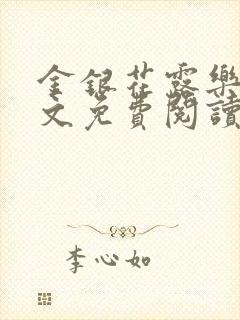 金銀花露樂
文免費閱讀
李心如